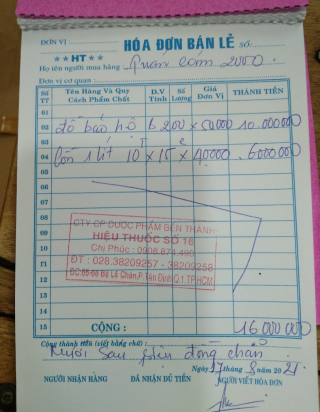 ĐƠN VỊ
HÓA ĐƠN BÁN LẺ Số:
★★ HT ★★
Họ tên người mua hàng Quán cơm 2000
Đơn vị cơ quan:
Số TT Tên Hàng Và Quy Cách Phẩm Chất Đ.V Tính Số Lượng Giá Đơn Vị THÀNH TIỀN
01
02 đồ bảo hộ b 200 x 50000 10.000000
03
04 Cồn 1 lít 10 x 15 x 40000 6000000
05
06
07
08
09
10
11
12
13
14
15 CỘNG: 16 000 000
CTY CP DƯỢC PHẨM BẾN THÀNH
HIỆU THUỐC SỐ 16
Chi Phúc: 0908.674.490
ĐT: 028.38209257 - 38209258
Cộng thành tiền (viết bằng chữ): Mười sáu triệu đồng chẵn
Ngày 17 tháng 8 năm 2021
NGƯỜI NHẬN HÀNG ĐÃ NHẬN ĐỦ TIỀN NGƯỜI VIẾT HÓA ĐƠN